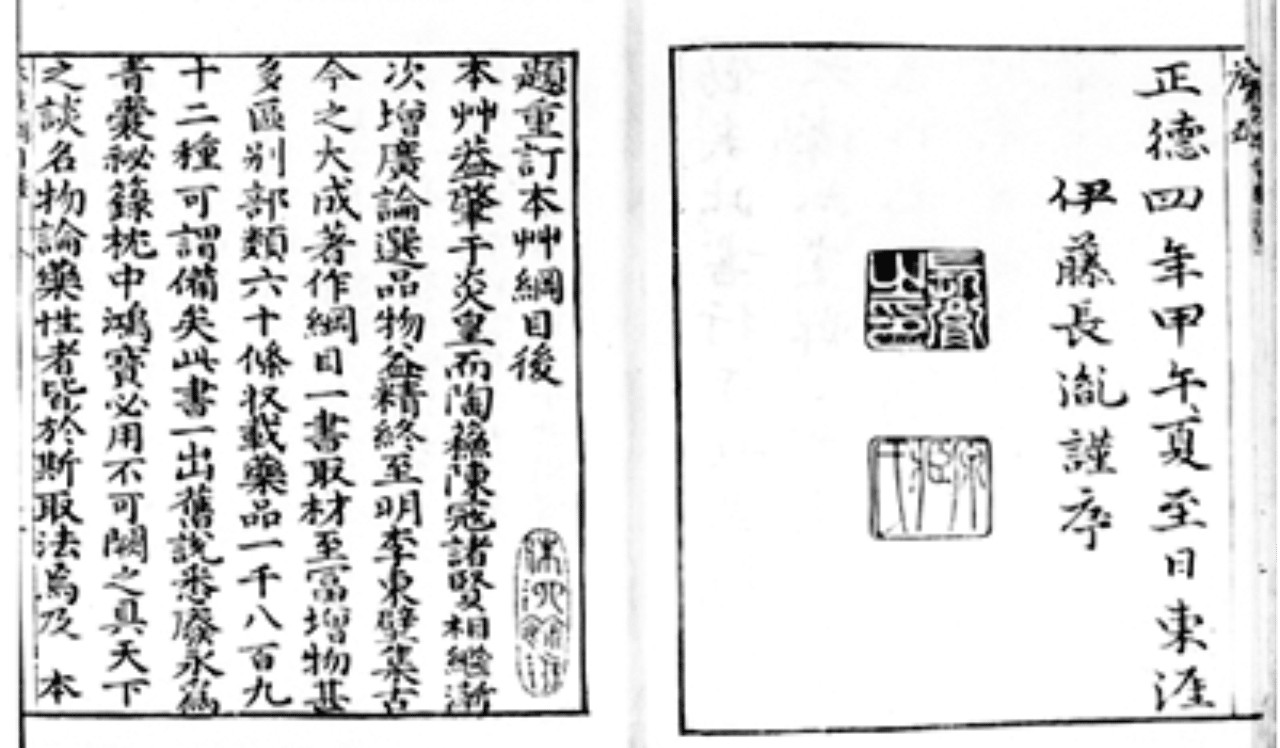 正德四年甲午夏至日東涯
伊藤長胤謹序
題重訂本艸綱目後
本艸益肇于炎皇而陶蘓陳寇諸賢相繼漸
次增廣論選品物益精終至明李東壁集古
今之大成著作綱目一書取材至富增物甚
多區別部類六十條収載藥品一千八百九
十二種可謂備矣此書一出舊說悉廢永爲
青囊祕籙枕中鴻寶必用不可闕之具天下
之談名物論藥性者皆於斯取法焉及 本